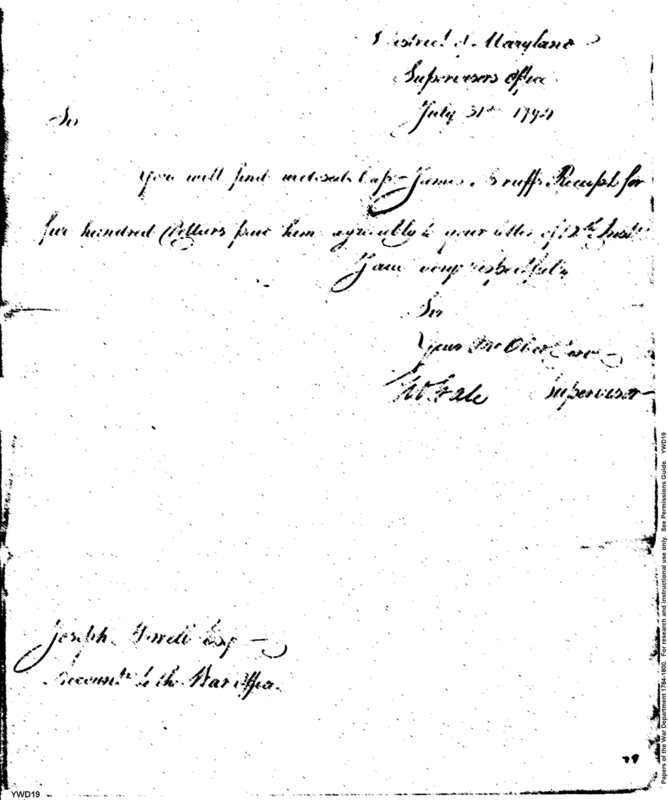 District of Maryland
Supervisors Office
July 31st 1794
Sir
You will find inclosed Cap James Bruffs Receipt for
hundred Dollars paid him agreeably to your letter of 12th Inst
I am very respectfully
Sir
Your Mo Obet Serv
Gale Supervisor
Joseph Howell Esq
Accountt to the War Office
79
YWD19
Papers of the War Department 1784-1800. For research and instructional use only. See Permissions Guide. YWD19